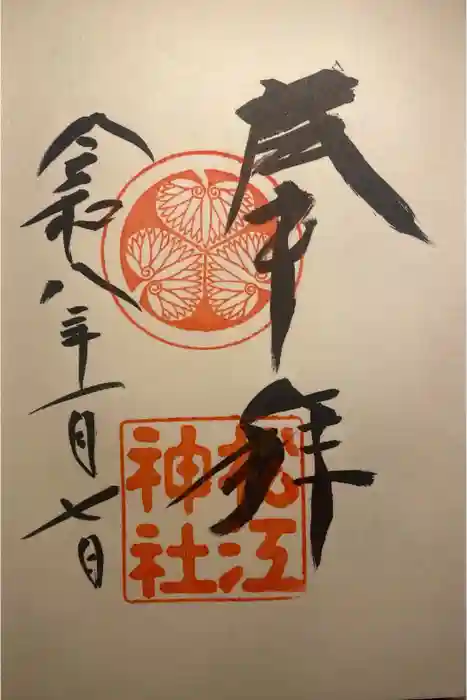 奉拝
松江
神社
令和八年一月七日